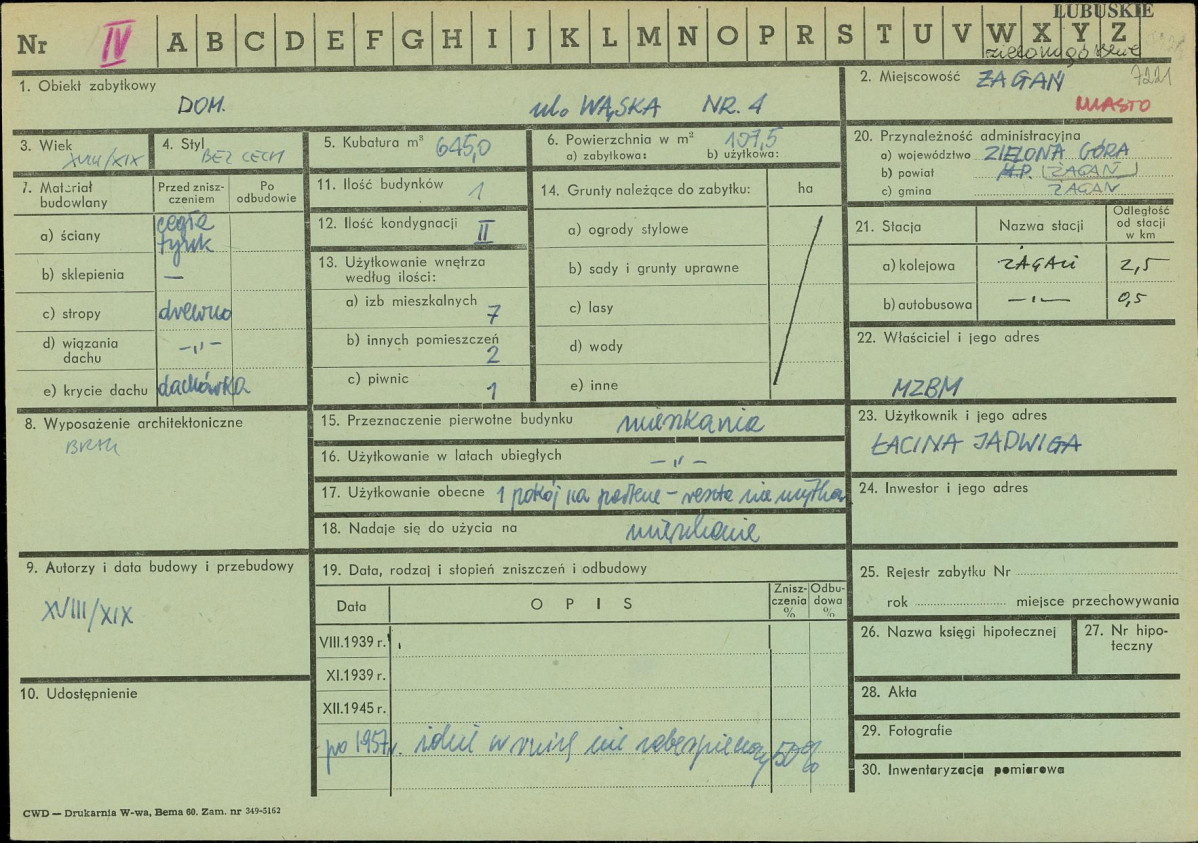 LUBUSKIE
Nr IV A B C D E F G H I J K L M N O P R S T U V W X Y Z
zielonogórskie
7221
1. Obiekt zabytkowy
DOM. ul. WĄSKA NR. 4
2. Miejscowość ŻAGAŃ
MIASTO
3. Wiek XVIII/XIX
4. Styl BEZ CECH
5. Kubatura m³ 645,0
6. Powierzchnia w m² 107,5
a) zabytkowa: b) użytkowa:
20. Przynależność administracyjna
a) województwo ZIELONA GÓRA
b) powiat M.P. ŻAGAŃ
c) gmina ŻAGAŃ
7. Materiał budowlany
Przed zniszczeniem
Po odbudowie
a) ściany cegła tynk
b) sklepienia —
c) stropy drewno
d) wiązania dachu -„-
e) krycie dachu dachówka
11. Ilość budynków 1
12. Ilość kondygnacji II
13. Użytkowanie wnętrza według ilości:
a) izb mieszkalnych 7
b) innych pomieszczeń 2
c) piwnic 1
14. Grunty należące do zabytku: ha
a) ogrody stylowe
b) sady i grunty uprawne
c) lasy
d) wody
e) inne
21. Stacja Nazwa stacji Odległość od stacji w km
a) kolejowa ŻAGAŃ 2,5
b) autobusowa -„- 0,5
22. Właściciel i jego adres
MZBM
8. Wyposażenie architektoniczne
BRAK
15. Przeznaczenie pierwotne budynku mieszkania
16. Użytkowanie w latach ubiegłych -„-
17. Użytkowanie obecne 1 pokój na parterze - reszta nie
18. Nadaje się do użycia na mieszkanie
23. Użytkownik i jego adres
ŁACINA JADWIGA
24. Inwestor i jego adres
9. Autorzy i data budowy i przebudowy
XVIII/XIX
10. Udostępnienie
19. Data, rodzaj i stopień zniszczeń i odbudowy
Data OPIS Zniszczenia % Odbudowa %
VIII.1939 r.
XI.1939 r.
XII.1945 r.
po 1957 r. w ruinę nie zabezpieczony 50%
25. Rejestr zabytku Nr
rok miejsce przechowywania
26. Nazwa księgi hipotecznej
27. Nr hipoteczny
28. Akta
29. Fotografie
30. Inwentaryzacja pomiarowa
CWD — Drukarnia W-wa, Bema 60. Zam. nr 349-5162